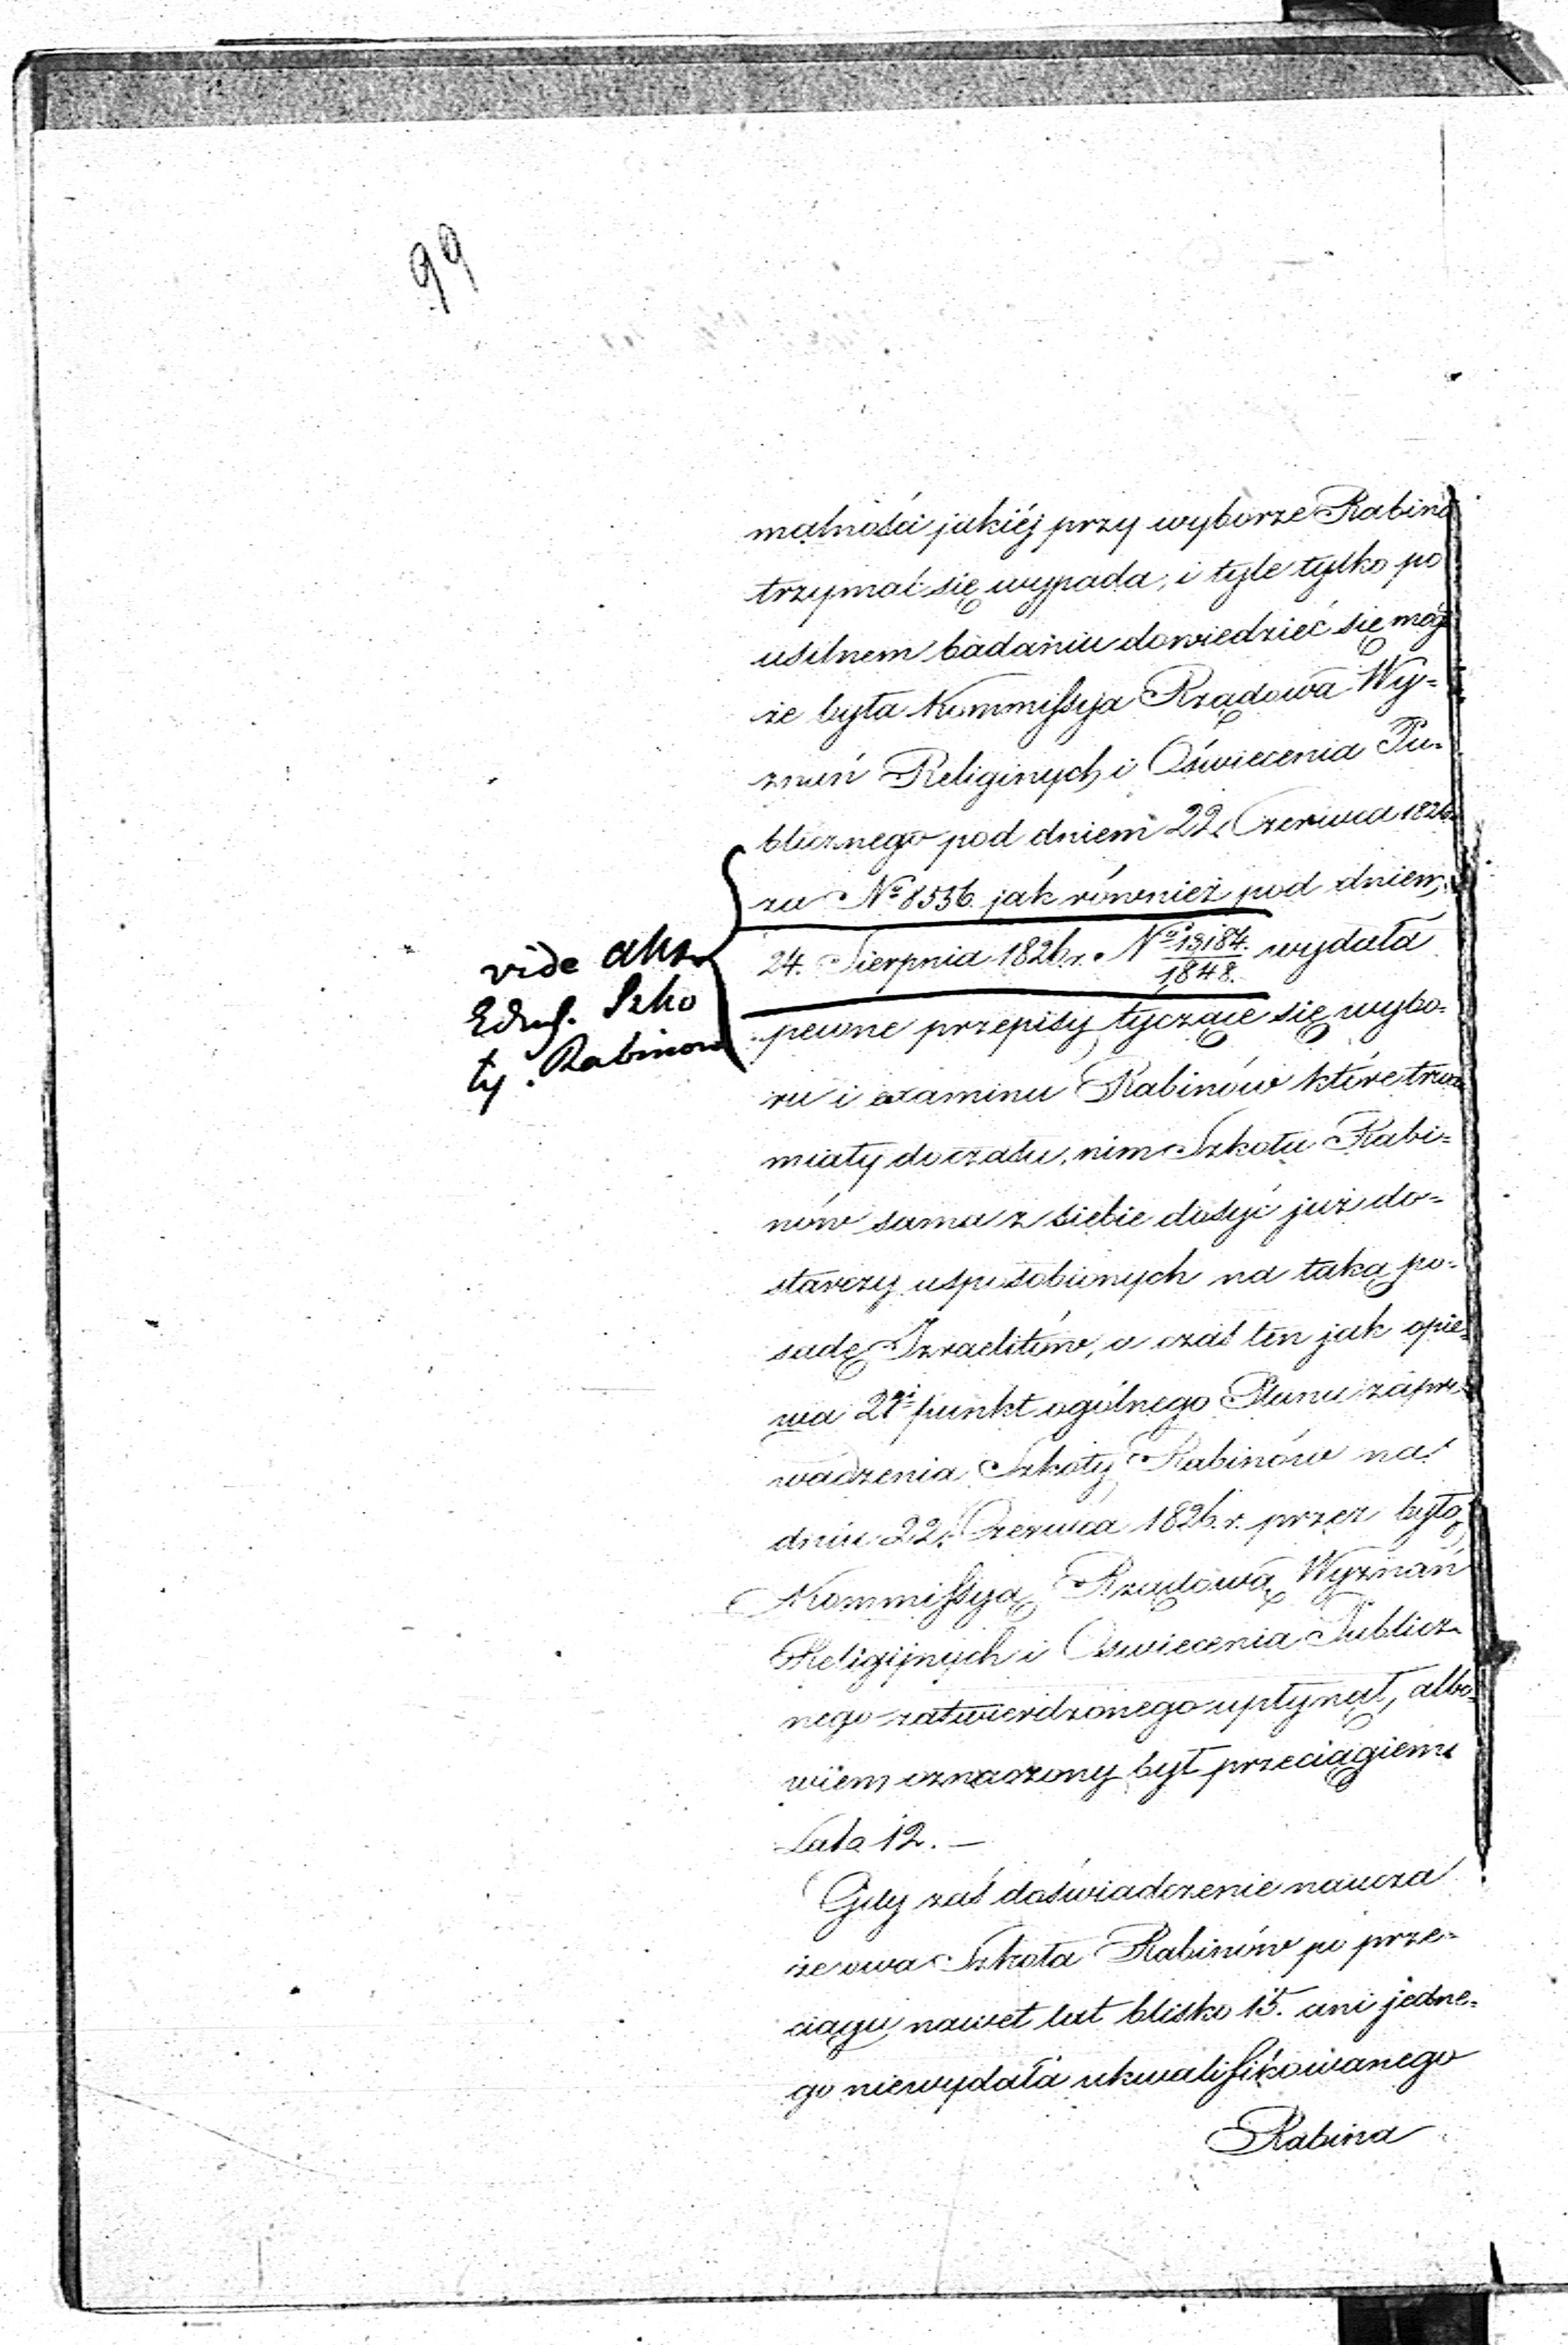 99
malności jakiéj przy wyborze Rabina
trzymać się wypada, i tyle tylko po
usilnem badaniu dowiedzieć się mógł
że była Kommissyja Rządowa Wy=
znań Religinych i Oświecenia Pu=
blicznego pod dniem 22. Czerwca 1826
za Nº 8536. jak również pod dniem
24. Sierpnia 1826 r. Nº 13,184./1848. wydała
pewne przepisy tyczące się wybo=
ru i examinu Rabinów które trwać
miały do czasu, nim Szkoła Rabi=
nów sama z siebie dosyć już do=
starczy usposobionych na taką po=
sadę Izraelitów, a czas ten jak opie=
wa punkt ogólnego Planu zapro=
wadzenia Szkoły Rabinów na
dniu 22. Czerwca 1826. r. przez byłą
Kommissyą Rządową Wyznań
Religijnych i Oswiecenia Publicz=
nego zatwierdzonego upłynął, albo=
wiem oznaczony był przeciągiem
Lat 12. —
Gdy zaś doświadczenie naucza
że owa Szkoła Rabinów po prze=
ciągu nawet lat blisko 15. ani jedne=
go niewydała ukwalifikowanego
Rabina
vide akta
Szko
ty. Rabinow